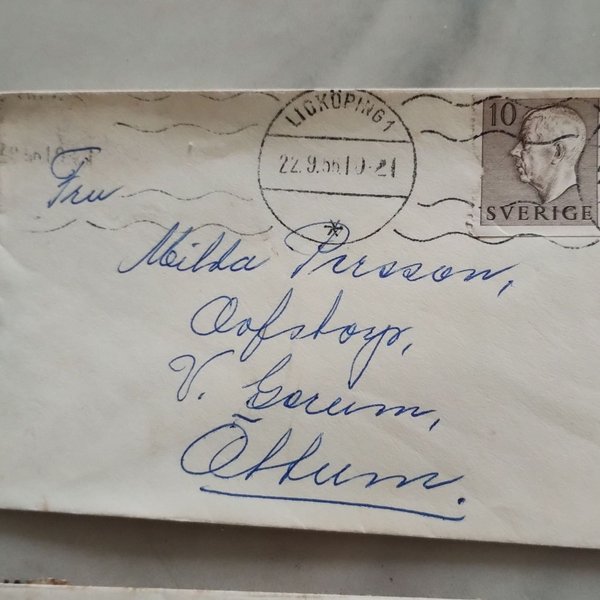 LIDKÖPING 1
22.9.56 19-21
10
SVERIGE
Fru
Milda Persson,
V. Gerum,
Öttum.